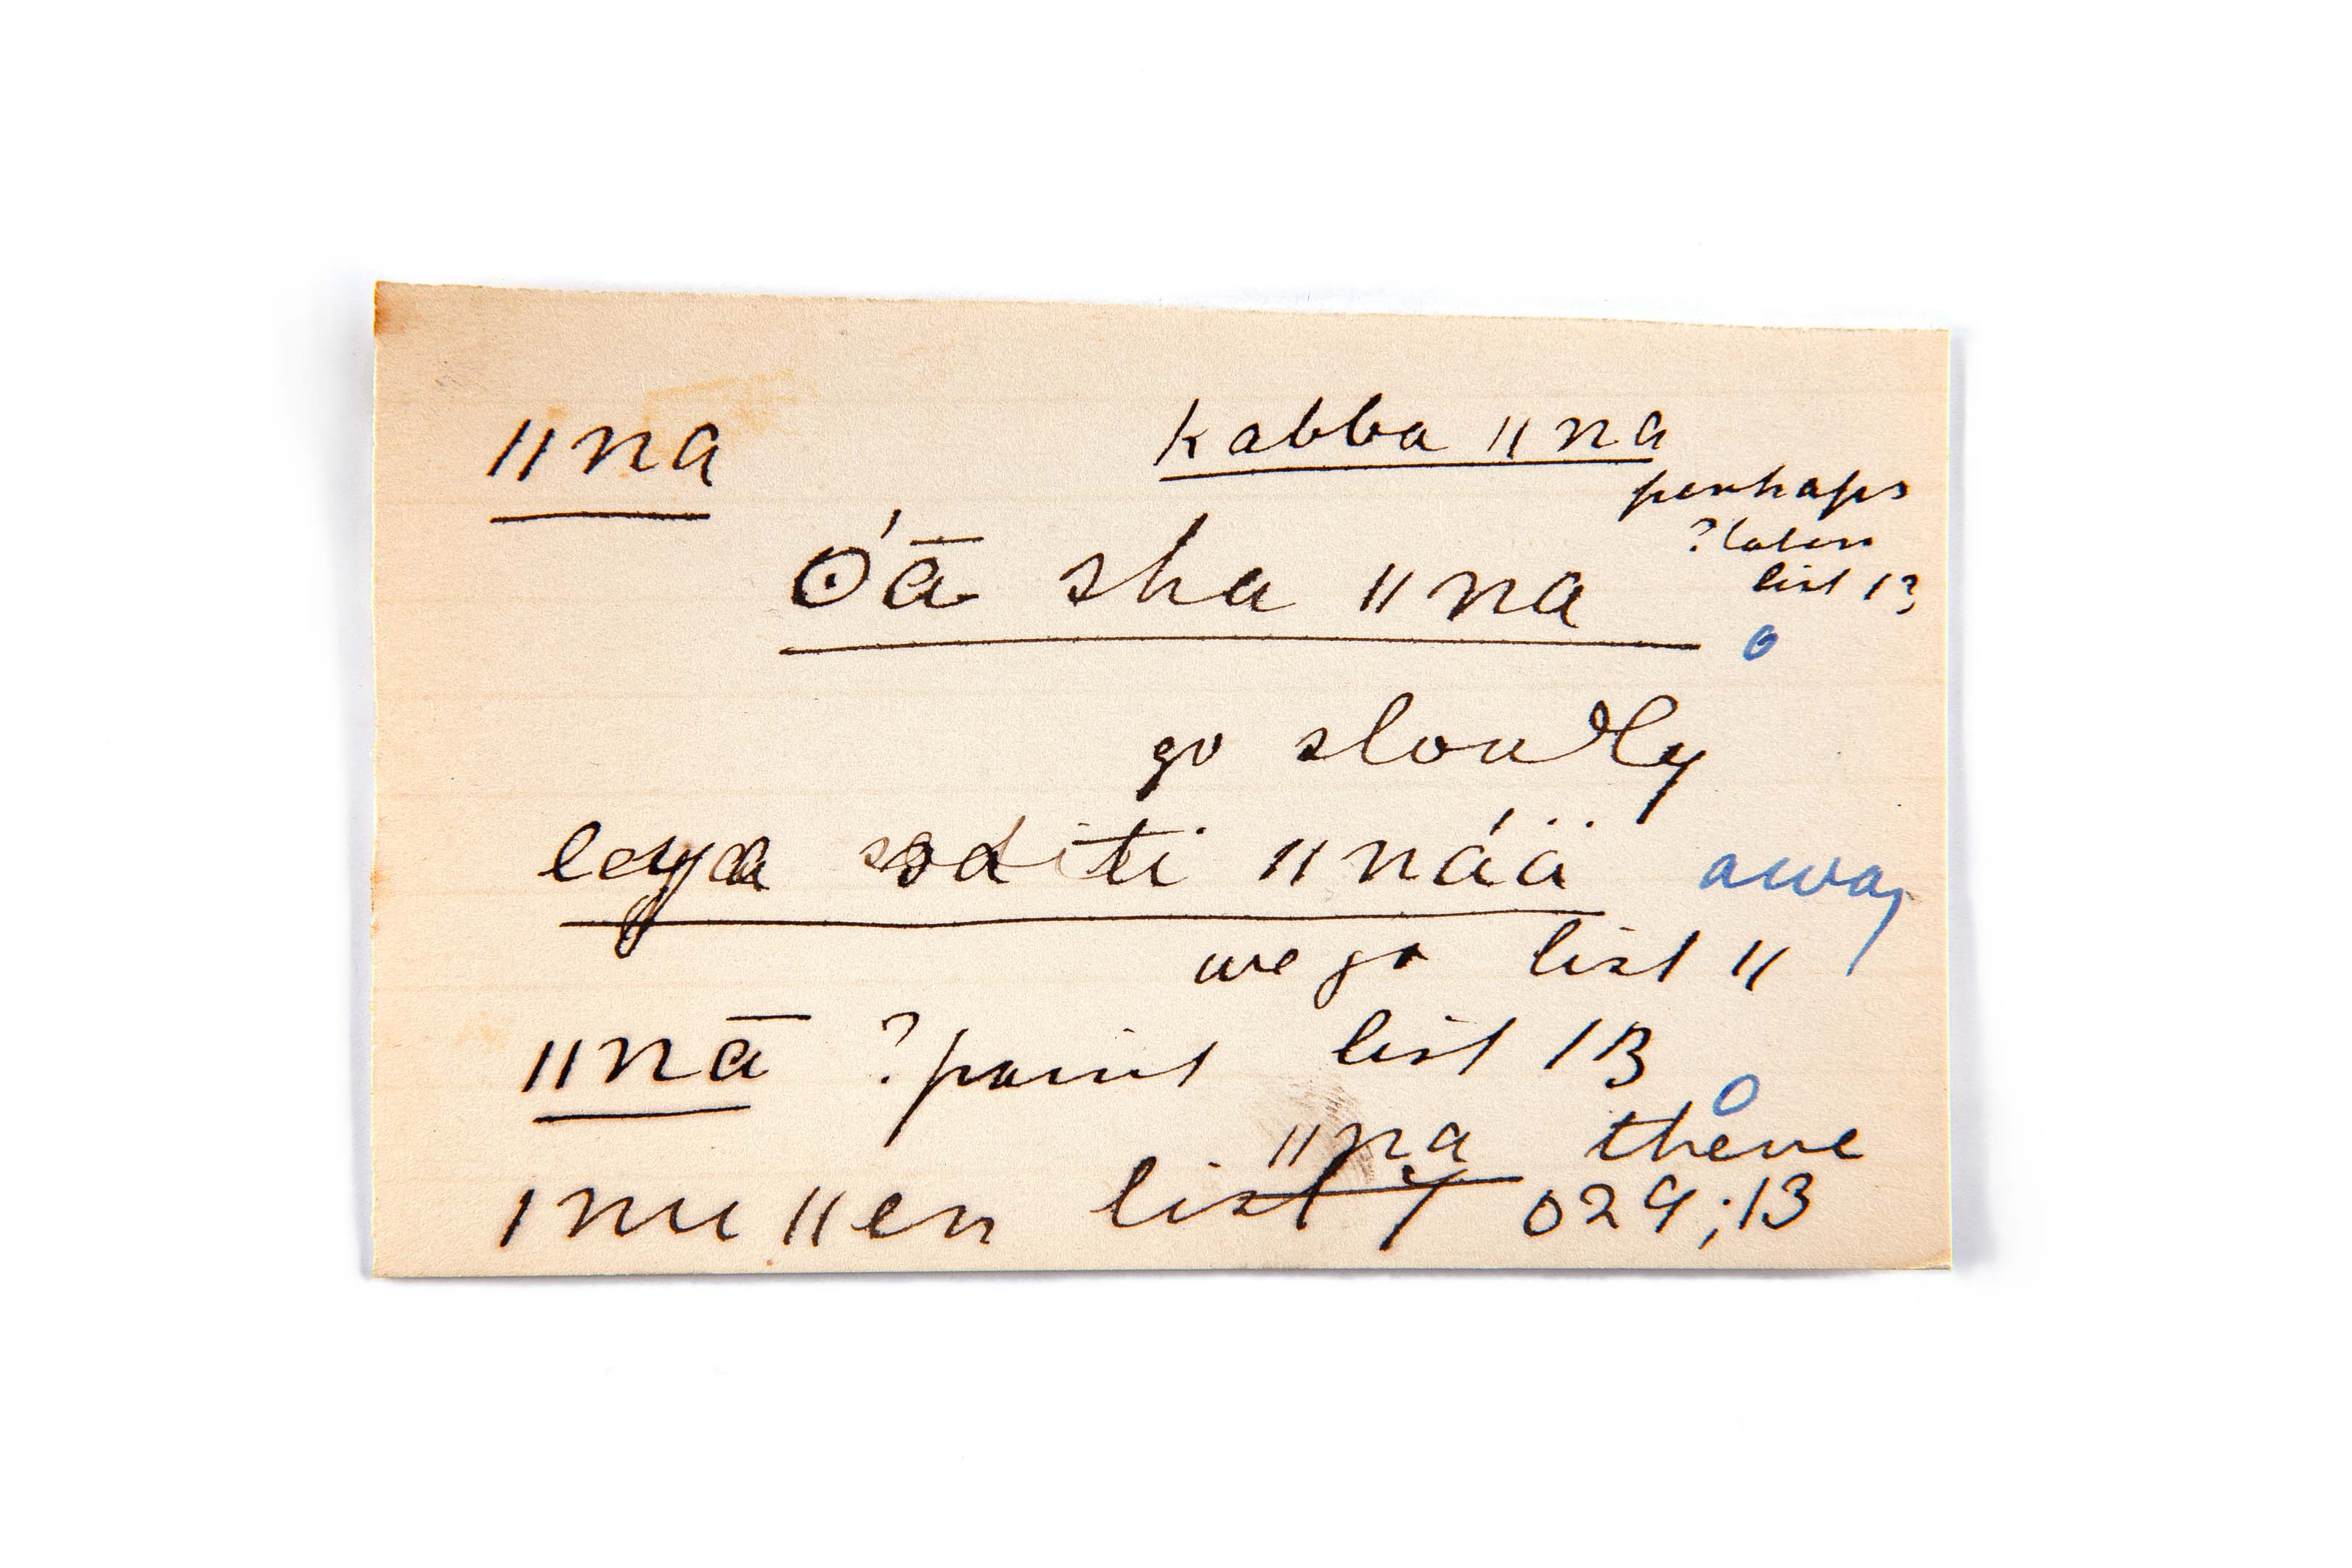 ǁna kabba ǁna
perhaps
? later
list 13
ʘ́ā sha ǁna o
go slowly
ǁnáä away
we go list 11
ǁnā ? point list 13
o
ǁna there
ǀnuǁen list 7 029;13